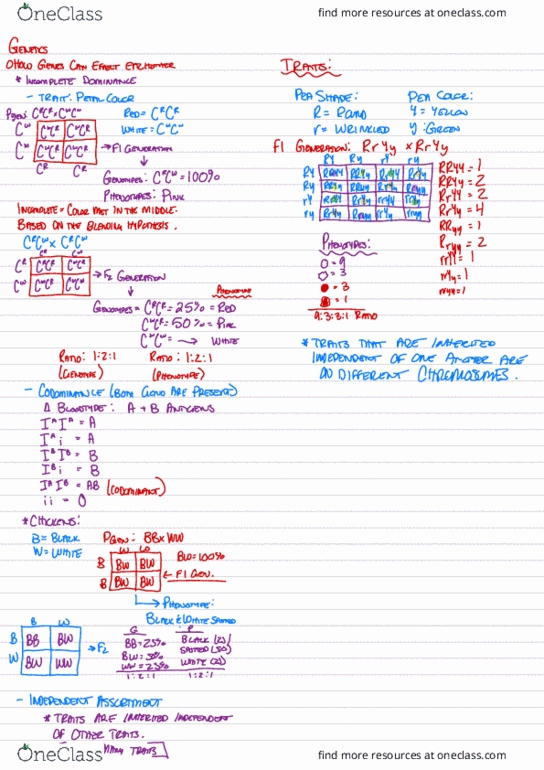 OneClass
find more resources at oneclass.com
GENETICS
HOW GENES CAN EFFECT EACHOTHER
* INCOMPLETE DOMINANCE
- TRAIT: PETAL COLOR
PGEN: CᴿCᴿ × CᵂCᵂ
RED = CᴿCᴿ
WHITE = CᵂCᵂ
Cᵂ CᵂCᴿ CᵂCᴿ
Cᵂ CᵂCᴿ CᵂCᴿ → F1 GENERATION
Cᴿ Cᴿ
GENOTYPES: CᴿCᵂ = 100%
PHENOTYPES: PINK
INCOMPLETE = COLOR MEET IN THE MIDDLE.
BASED ON THE BLENDING HYPOTHESIS.
CᴿCᵂ × CᴿCᵂ
Cᴿ CᴿCᴿ CᴿCᵂ
Cᵂ CᴿCᵂ CᵂCᵂ → F2 GENERATION
PHENOTYPE
GENOTYPES = CᴿCᴿ = 25% = RED
CᴿCᵂ = 50% = PINK
CᵂCᵂ = → WHITE
RATIO: 1:2:1 RATIO: 1:2:1
(GENOTYPE) (PHENOTYPE)
- CODOMINANCE (BOTH ARE PRESENT)
Δ BLOODTYPE: A + B ANTIGENS
IᴬIᴬ = A
Iᴬi = A
IᴮIᴮ = B
Iᴮi = B
IᴬIᴮ = AB (CODOMINANT)
ii = O
* CHICKENS:
B = BLACK
W = WHITE
PGEN: BB × WW
W W
B BW BW
B BW BW
BW = 100%
← F1 GEN.
→ PHENOTYPE:
BLACK & WHITE SPOTTED
B W
B BB BW
W BW WW
→ F2
G P
BB = 25% BLACK (25)
BW = 50% SPOTTED (50)
WW = 25% WHITE (25)
1:2:1 1:2:1
- INDEPENDENT ASSORTMENT
* TRAITS ARE INHERITED INDEPENDENT
OF OTHER TRAITS.
MANY TRAITS
TRAITS:
PEA SHAPE: PEA COLOR:
R = ROUND Y = YELLOW
r = WRINKLED y: GREEN
F1 GENERATION: RrYy × RrYy
RY Ry rY ry
RY RRYY RRYy RrYY RrYy
Ry RRYy RRyy RrYy Rryy
rY RrYY RrYy rrYY rrYy
ry RrYy Rryy rrYy rryy
RRYY = 1
RRYy = 2
RrYY = 2
RrYy = 4
RRyy = 1
Rryy = 2
rrYY = 1
rrYy = 1
rryy = 1
PHENOTYPES:
= 9
= 3
= 3
= 1
9:3:3:1 RATIO
* TRAITS THAT ARE INHERITED
INDEPENDENT OF ONE ANOTHER ARE
ON DIFFERENT CHROMOSOMES.
OneClass
find more resources at oneclass.com